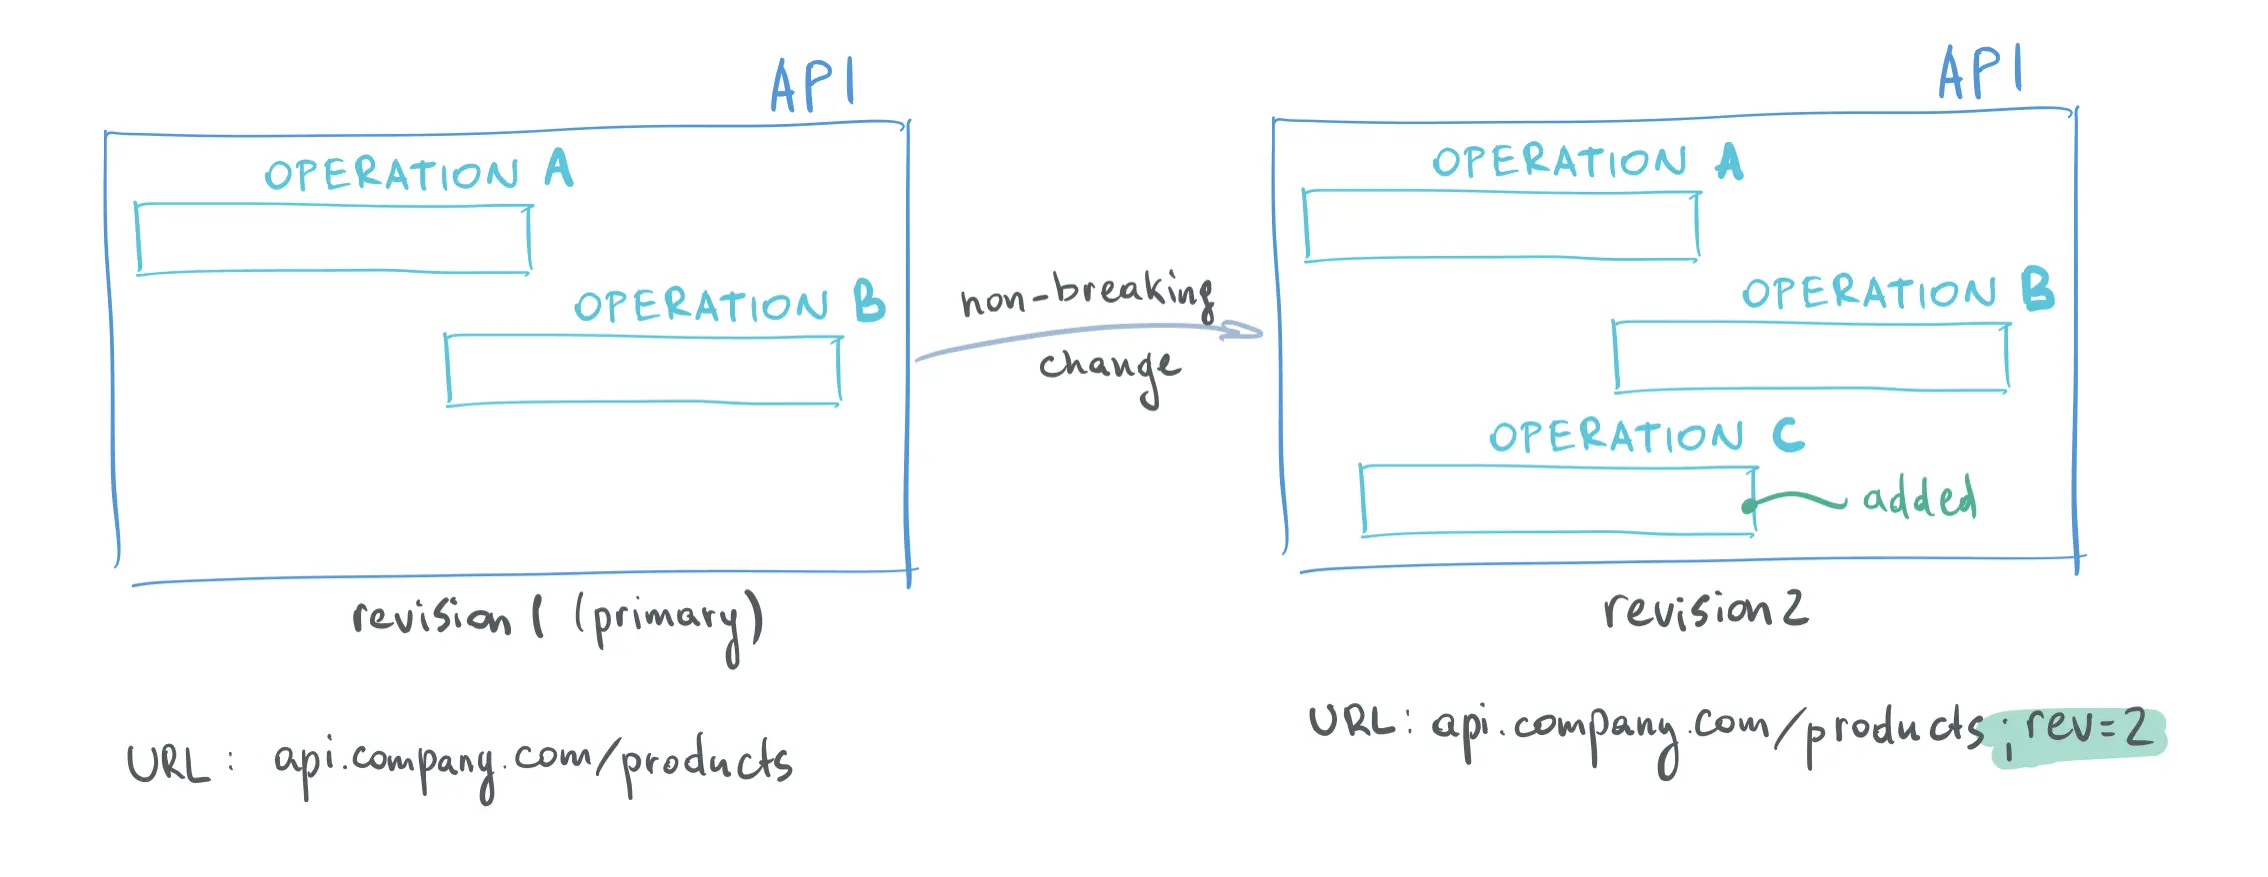 API
OPERATION A
OPERATION B
revision 1 (primary)
URL: api.company.com/products
non-breaking
change
API
OPERATION A
OPERATION B
OPERATION C
added
revision 2
URL: api.company.com/products;rev=2